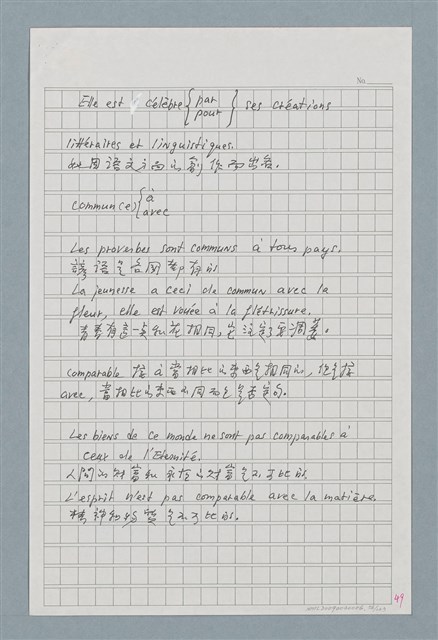 No.
Elle est célèbre { par pour } ses créations
littéraires et linguistiques.
她因語文方面的創作而出名。
commun(e) { à avec
Les proverbes sont communs à tous pays.
諺語是各國都有的
La jeunesse a ceci de commun avec la
fleur, elle est vouée à la flétrissure.
青春有這一點和花相同,它注定要凋萎。
comparable 接 à 當相比的東西是相同的,但是接
avec, 當相比的東西的同而是否定的。
Les biens de ce monde ne sont pas comparables à
ceux de l'Eternité.
人間的財富和永恆的財富是不可比的
L'esprit n'est pas comparable avec la matière.
精神和物質是不可比的。
49